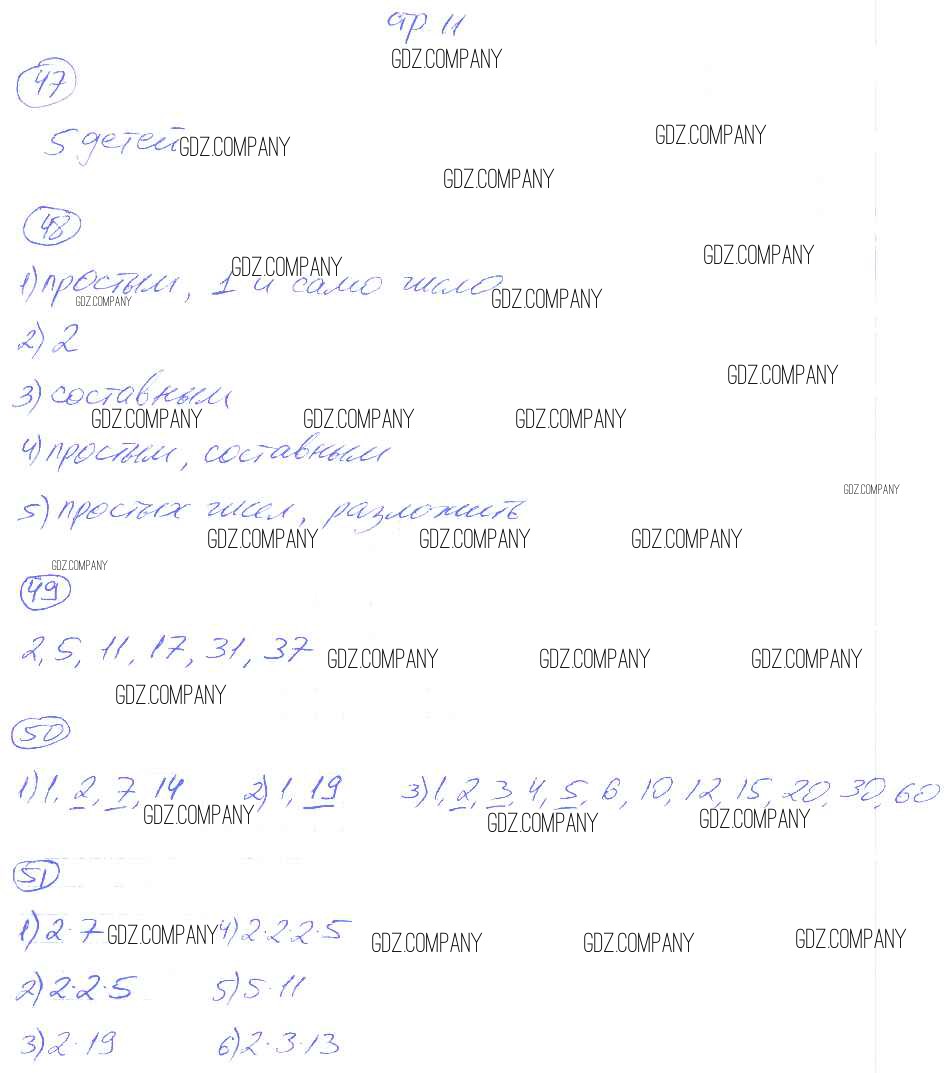 стр 11
GDZ.COMPANY
47
5 детей GDZ.COMPANY GDZ.COMPANY
GDZ.COMPANY
48
GDZ.COMPANY GDZ.COMPANY
1) простым, 1 и само число GDZ.COMPANY
GDZ.COMPANY
2) 2
GDZ.COMPANY
3) составным
GDZ.COMPANY GDZ.COMPANY GDZ.COMPANY
4) простым, составным
GDZ.COMPANY
5) простых чисел, разложить
GDZ.COMPANY GDZ.COMPANY GDZ.COMPANY
GDZ.COMPANY
49
2, 5, 11, 17, 31, 37 GDZ.COMPANY GDZ.COMPANY GDZ.COMPANY
GDZ.COMPANY
50
1) 1, 2, 7, 14 2) 1, 19 3) 1, 2, 3, 4, 5, 6, 10, 12, 15, 20, 30, 60
GDZ.COMPANY GDZ.COMPANY GDZ.COMPANY
51
1) 2·7 GDZ.COMPANY 4) 2·2·2·5 GDZ.COMPANY GDZ.COMPANY GDZ.COMPANY
2) 2·2·5 5) 5·11
3) 2·19 6) 2·3·13